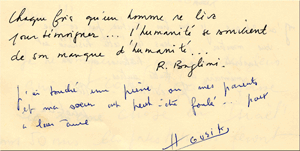 Chaque fois qu'un homme se lève
pour témoigner ... l'humanité se souvient
de son manque d'humanité...
R.
j'ai touché une pierre où mes parents
et ma soeur ont peut-être foulé ... part
à leur âme
H